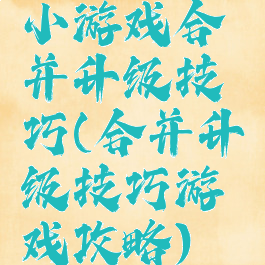 小游戏合
并升级技
巧(合并升
级技巧游
戏攻略)